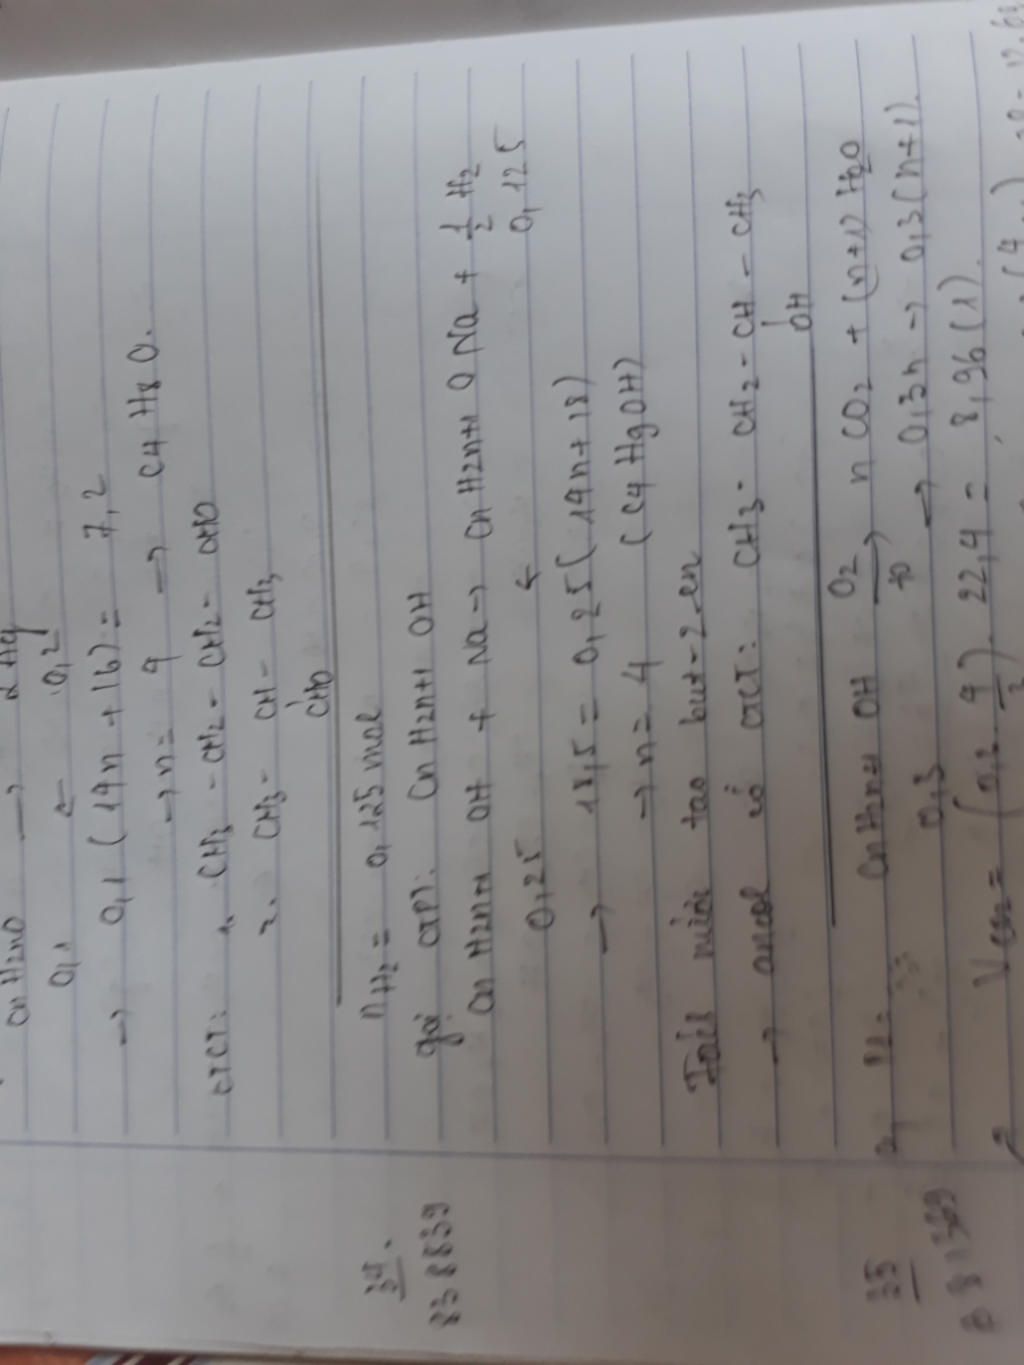 CnH2nO → 2 Ag
0,1 ← 0,2
→ 0,1 (14n + 16) = 7,2
→ n = 4 → C4H8O.
CTCT: 1. CH3 - CH2 - CH2 - CHO
2. CH3 - CH - CH3
CHO
34. nH2 = 0,125 mol
838839 gọi CTPT: CnH2n+1OH
CnH2n+1OH + Na → CnH2n+1ONa + 1/2 H2
0,25 ← 0,125
→ 18,5 = 0,25 (14n + 18)
→ n = 4 (C4H9OH)
Tách nước tạo but-2-en
→ ancol có CTCT: CH3 - CH2 - CH - CH3
OH
35 CnH2n+1OH O2 → to nCO2 + (n+1) H2O
0,3 → 0,3n → 0,3(n+1).
VCO2 = 22,4 = 8,96 (l).